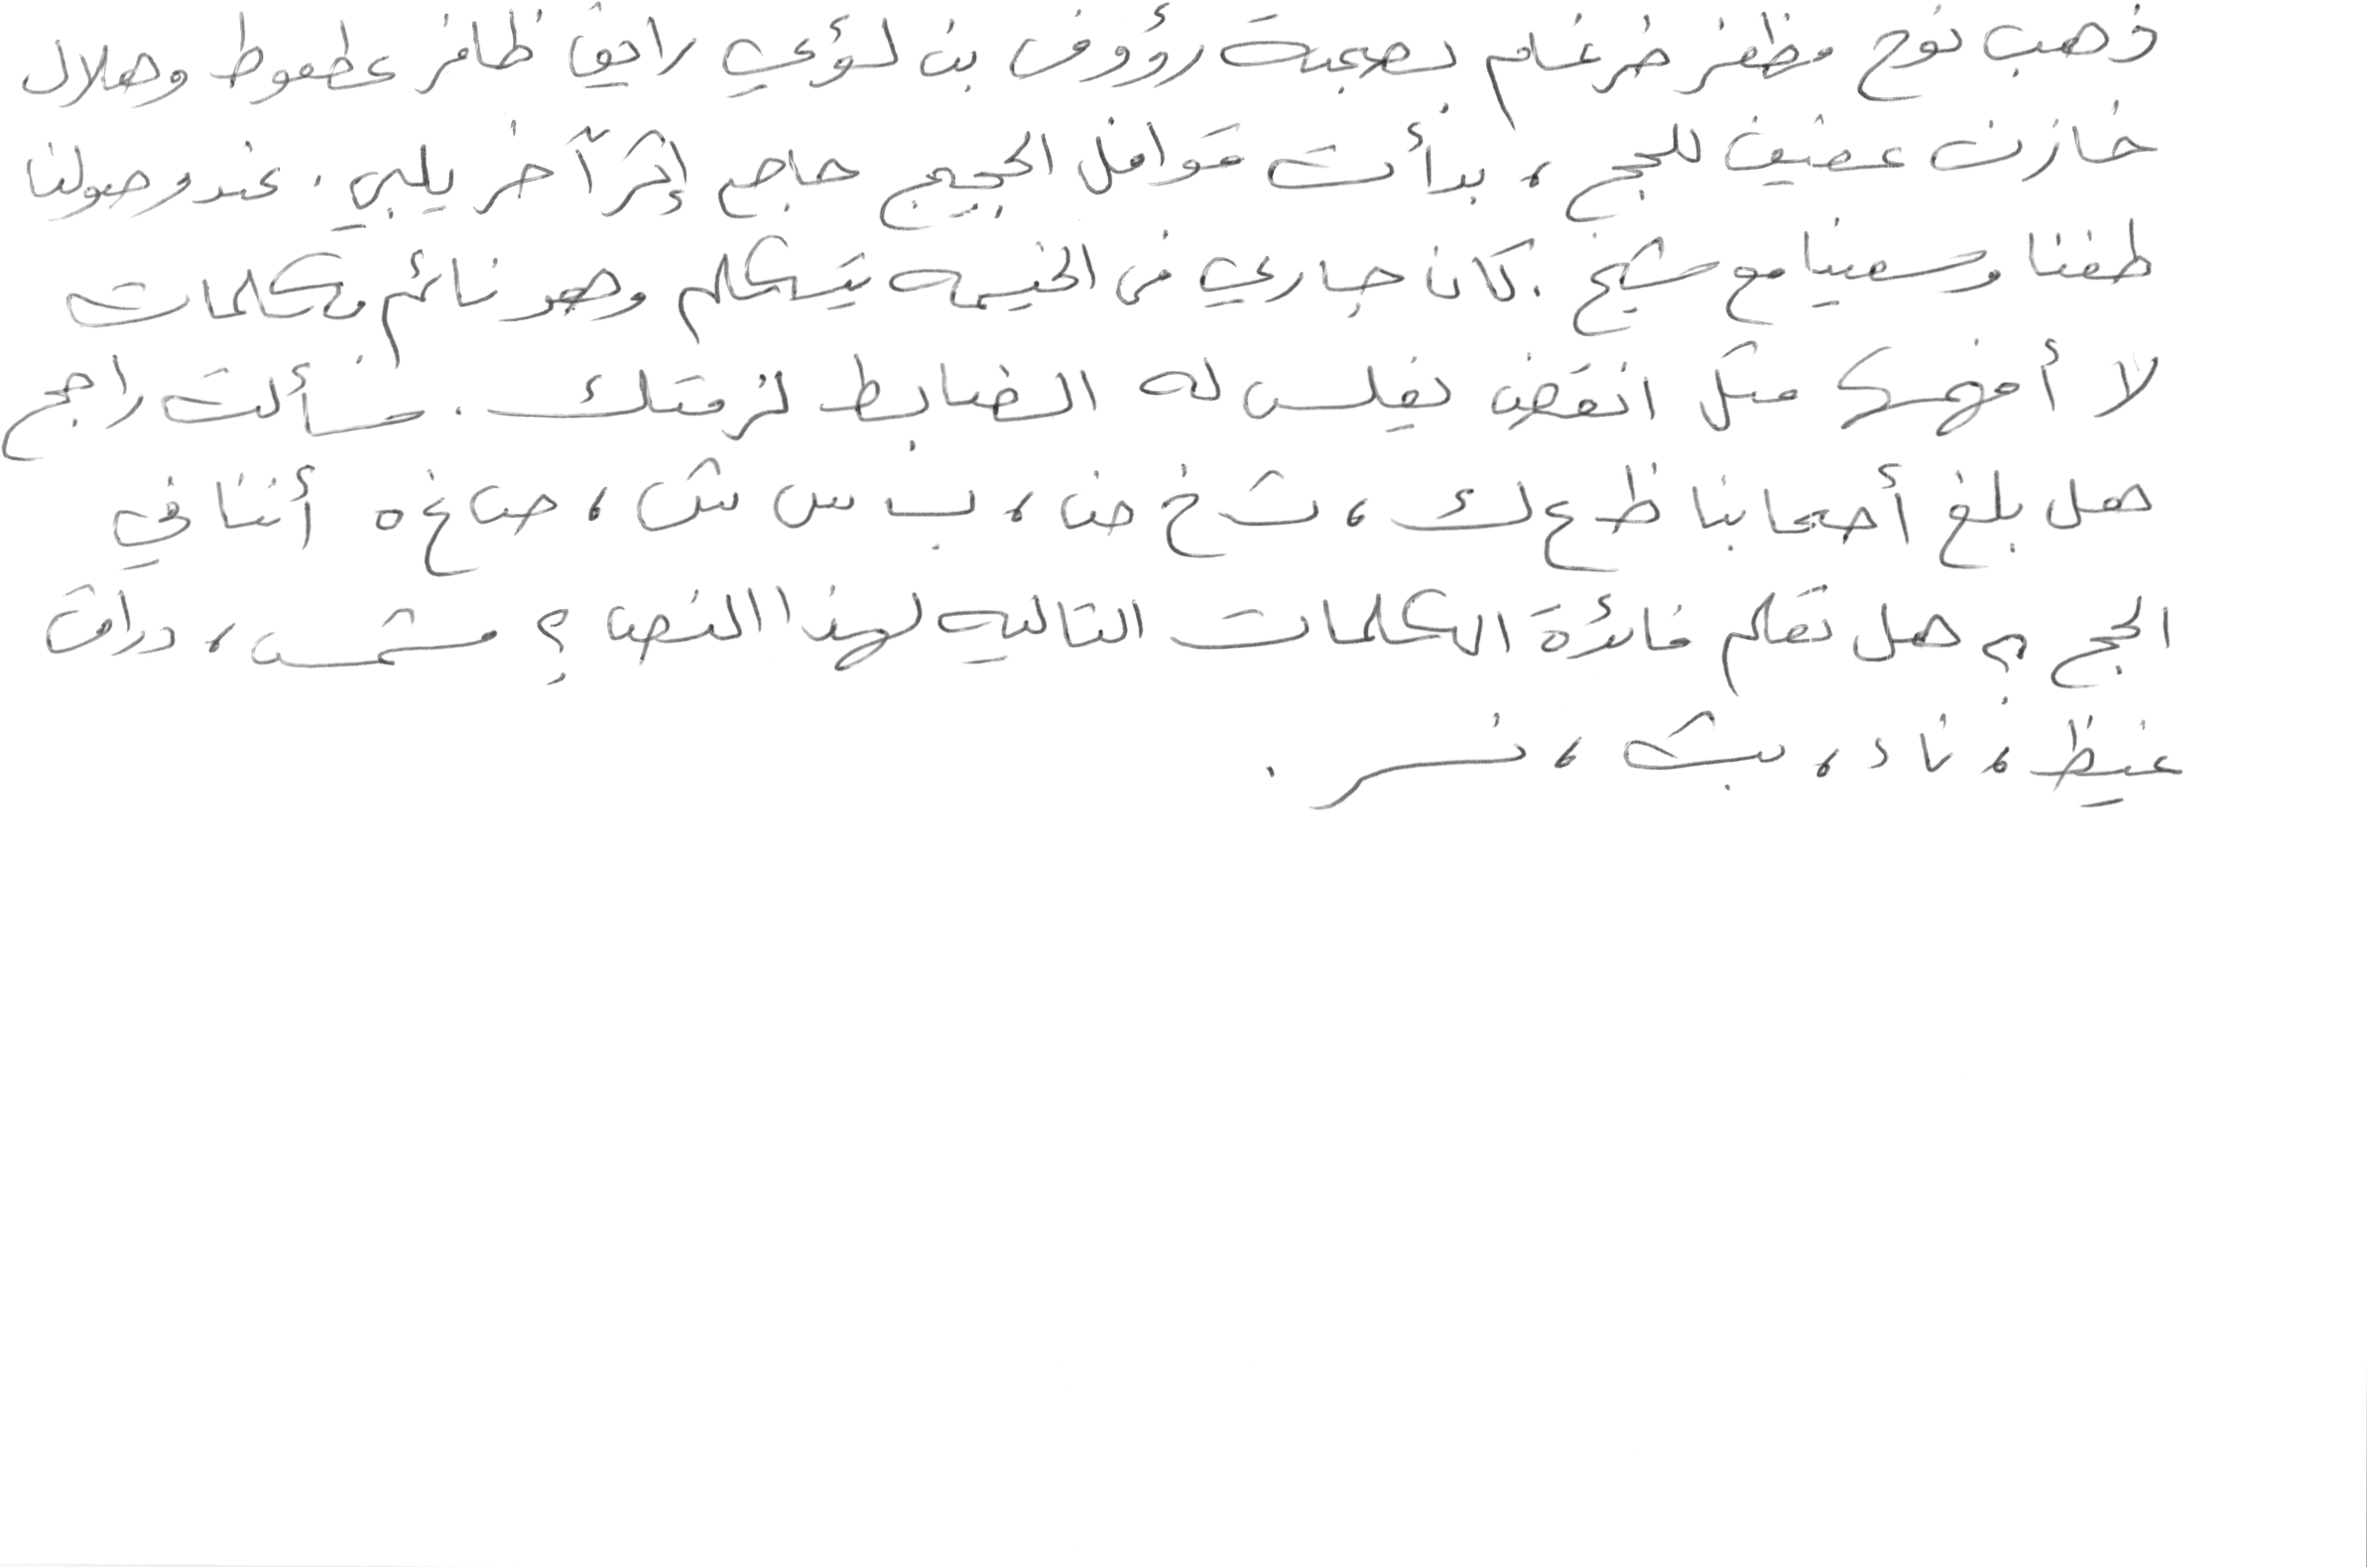 ذهب نوح مظفر ضرغام بصحبة رؤوف بن لؤي راجق ظافر عطعوط وهلال
خازن عفيف للحج ، بدأت قوافل الحجيج حاج إثر آخر يلبي . عند وصولنا
طفنا وسعينا مع شيخ . كان جاري في الخيمه يتكلم وهو نائم بكلمات
لا أفهمها مثل انقض نفلس له الضابط لزقتك . سألت راجح
هل بلغ أصحابنا ظ ع ك ، ث خ ض ، ب س ش ، ص غ ه أننا في
الحج ؟ هل تعلم فائدة الكلمات التاليه لهذا النص ؟ مشمس ، دراق
غيظ ، ناد ، بث ، نسر .